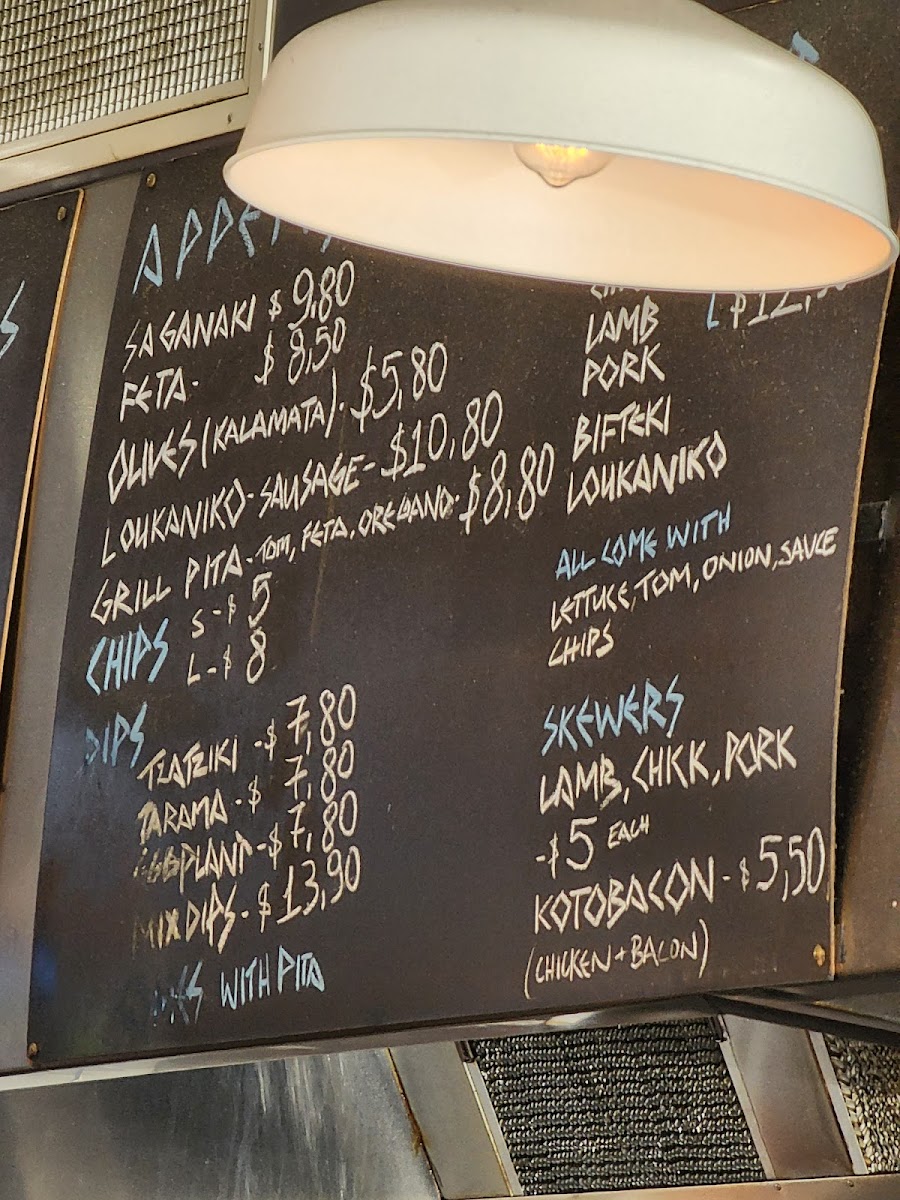 SAGANAKI $ 9,80
FETA- $ 8,50
OLIVES (KALAMATA)- $5,80
LOUKANIKO- SAUSAGE- $10,80
GRILL PITA- TOM, FETA, OREGANO- $8,80
CHIPS S-$ 5
L-$ 8
DIPS
TZATZIKI -$ 7,80
TARAMA -$ 7,80
EGGPLANT-$ 7,80
MIX DIPS-$ 13,90
WITH PITA
LAMB
PORK
BIFTEKI
LOUKANIKO
ALL COME WITH
LETTUCE, TOM, ONION, SAUCE
CHIPS
SKEWERS
LAMB, CHICK, PORK
-$5 EACH
KOTOBACON-$5,50
(CHICKEN+BACON)